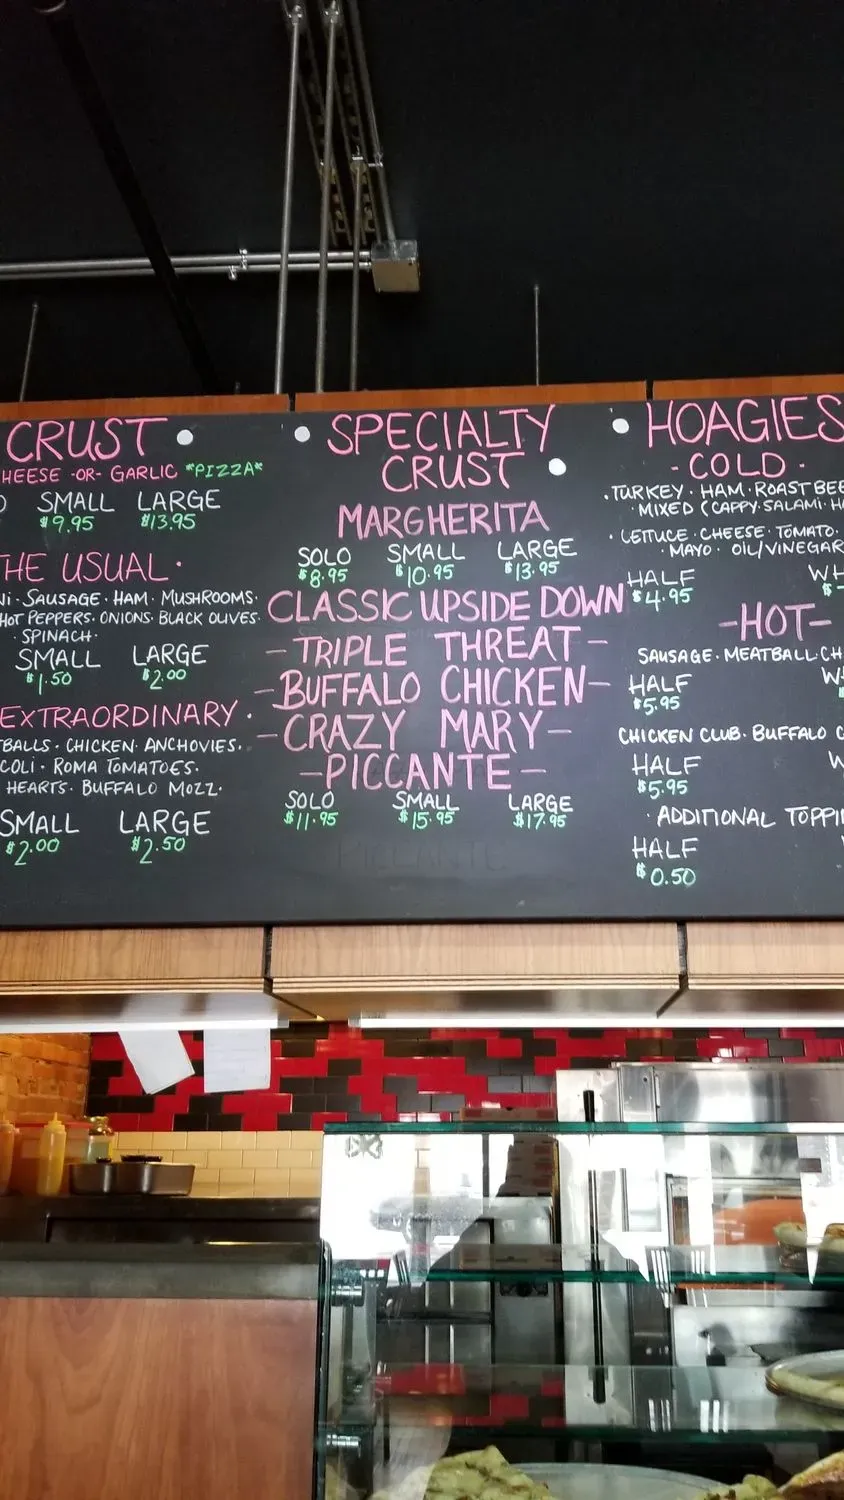 CRUST
HEESE -OR- GARLIC *PIZZA*
SMALL LARGE
$9.95 $13.95
THE USUAL ·
NI · SAUSAGE · HAM · MUSHROOMS ·
HOT PEPPERS · ONIONS · BLACK OLIVES ·
SPINACH ·
SMALL LARGE
$1.50 $2.00
EXTRAORDINARY ·
TBALLS · CHICKEN · ANCHOVIES ·
COLI · ROMA TOMATOES ·
HEARTS · BUFFALO MOZZ ·
SMALL LARGE
$2.00 $2.50
SPECIALTY
CRUST
MARGHERITA
SOLO SMALL LARGE
$8.95 $10.95 $13.95
CLASSIC UPSIDE DOWN
- TRIPLE THREAT -
- BUFFALO CHICKEN -
- CRAZY MARY -
- PICCANTE -
SOLO SMALL LARGE
$11.95 $15.95 $17.95
PICCANTE
HOAGIES
- COLD ·
· TURKEY · HAM · ROAST BEE
· MIXED (CAPPY · SALAMI · H
· LETTUCE · CHEESE · TOMATO ·
MAYO · OIL/VINEGAR
HALF WH
$4.95 $
- HOT -
SAUSAGE · MEATBALL · CH
HALF W
$5.95
CHICKEN CLUB · BUFFALO C
HALF W
$5.95
· ADDITIONAL TOPPI
HALF
$0.50